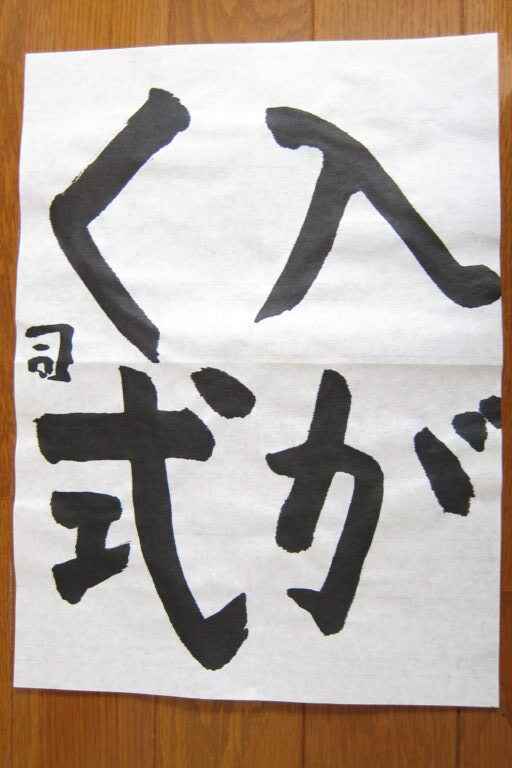 入が
く式
司